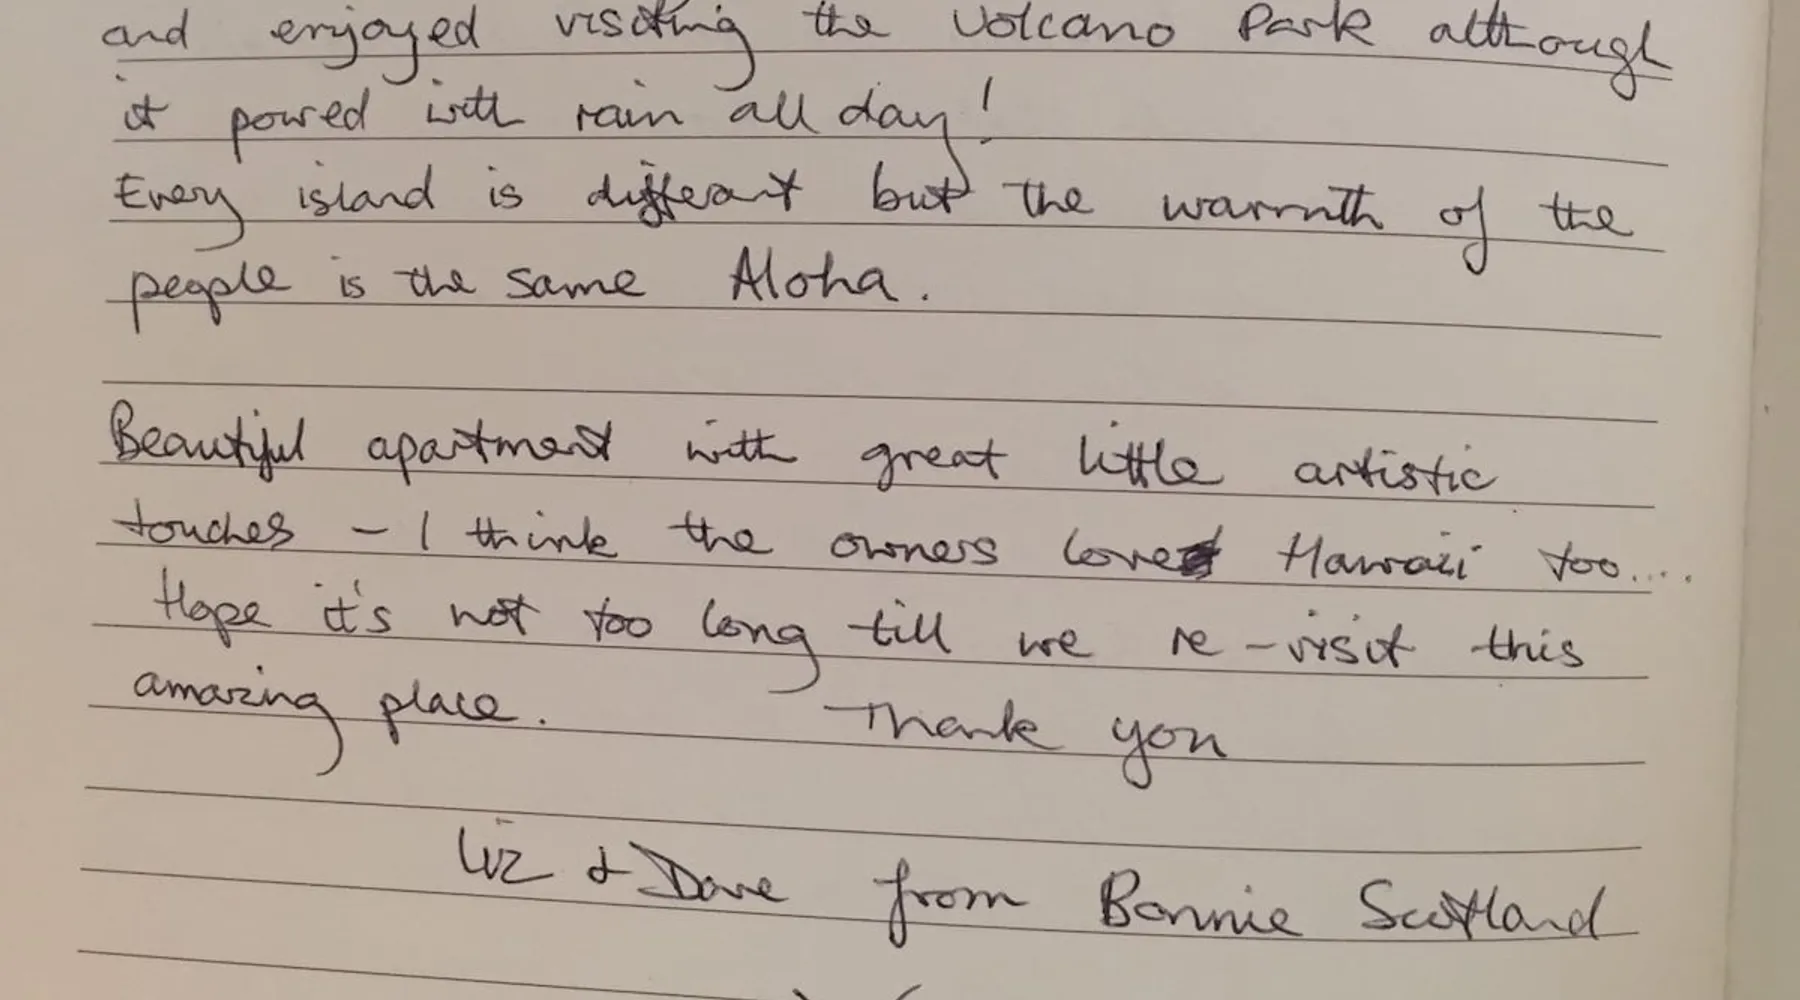 and enjoyed visiting the Volcano Park although
it poured with rain all day!
Every island is different but the warmth of the
people is the same Aloha.
Beautiful apartment with great little artistic
touches - I think the owners love Hawaii too....
Hope it's not too long till we re-visit this
amazing place. Thank you
Liz & Dave from Bonnie Scotland